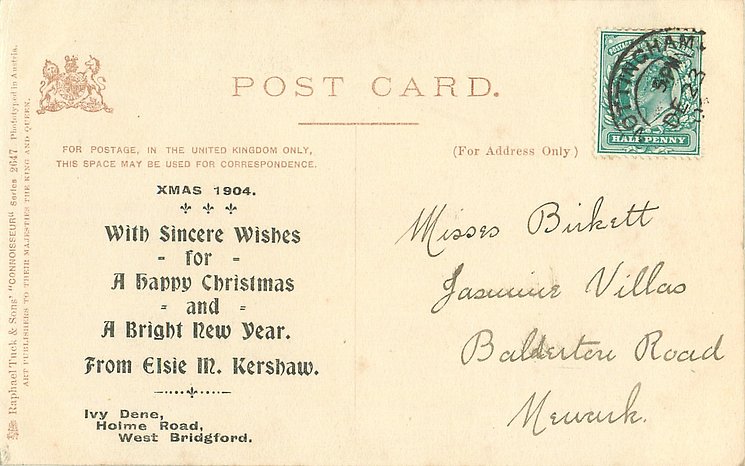 POST CARD.
FOR POSTAGE, IN THE UNITED KINGDOM ONLY,
THIS SPACE MAY BE USED FOR CORRESPONDENCE.
(For Address Only)
POSTAGE
HALFPENNY
NOTTINGHAM
DE 23
XMAS 1904.
With Sincere Wishes
- for -
A Happy Christmas
- and -
A Bright New Year.
From Elsie M. Kershaw.
Ivy Dene,
Holme Road,
West Bridgford.
Misses Birkett
Jasmine Villas
Balderton Road
Newark.
Raphael Tuck & Sons' "CONNOISSEUR" Series 2647 Phototyped in Austria.
ART PUBLISHERS TO THEIR MAJESTIES THE KING AND QUEEN.